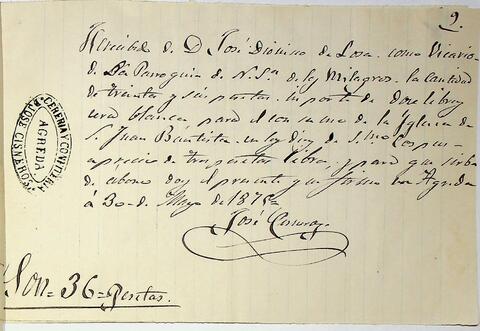 9.
He recibido de D. José Dionisio de Losa, como Vicario
de la Parroquia de N. Sra. de los Milagros, la cantidad
de treinta y seis pesetas, importe de doce libras
cera blanca para el consumo de la Iglesia de
S. Juan Bautista, en los dias de S.mo Corpus
a precio de tres pesetas libra, y para que sirba
de abono doy el presente que firmo en Agreda
á 30 de Mayo de 1876
José
CERERIA Y CONFITERIA
AGREDA
JOSE CISNEROS
Son = 36 = Pesetas.